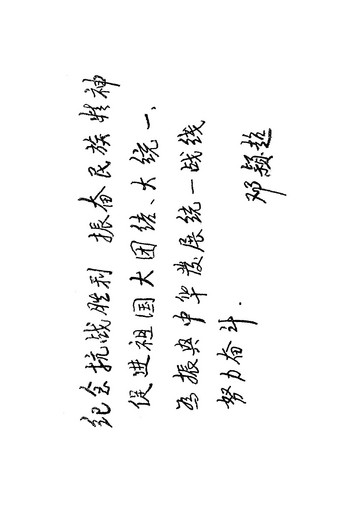 纪念抗战胜利 振奋民族精神
促进祖国大团结、大统一、
为振兴中华发展统一战线
努力奋斗.
邓颖超